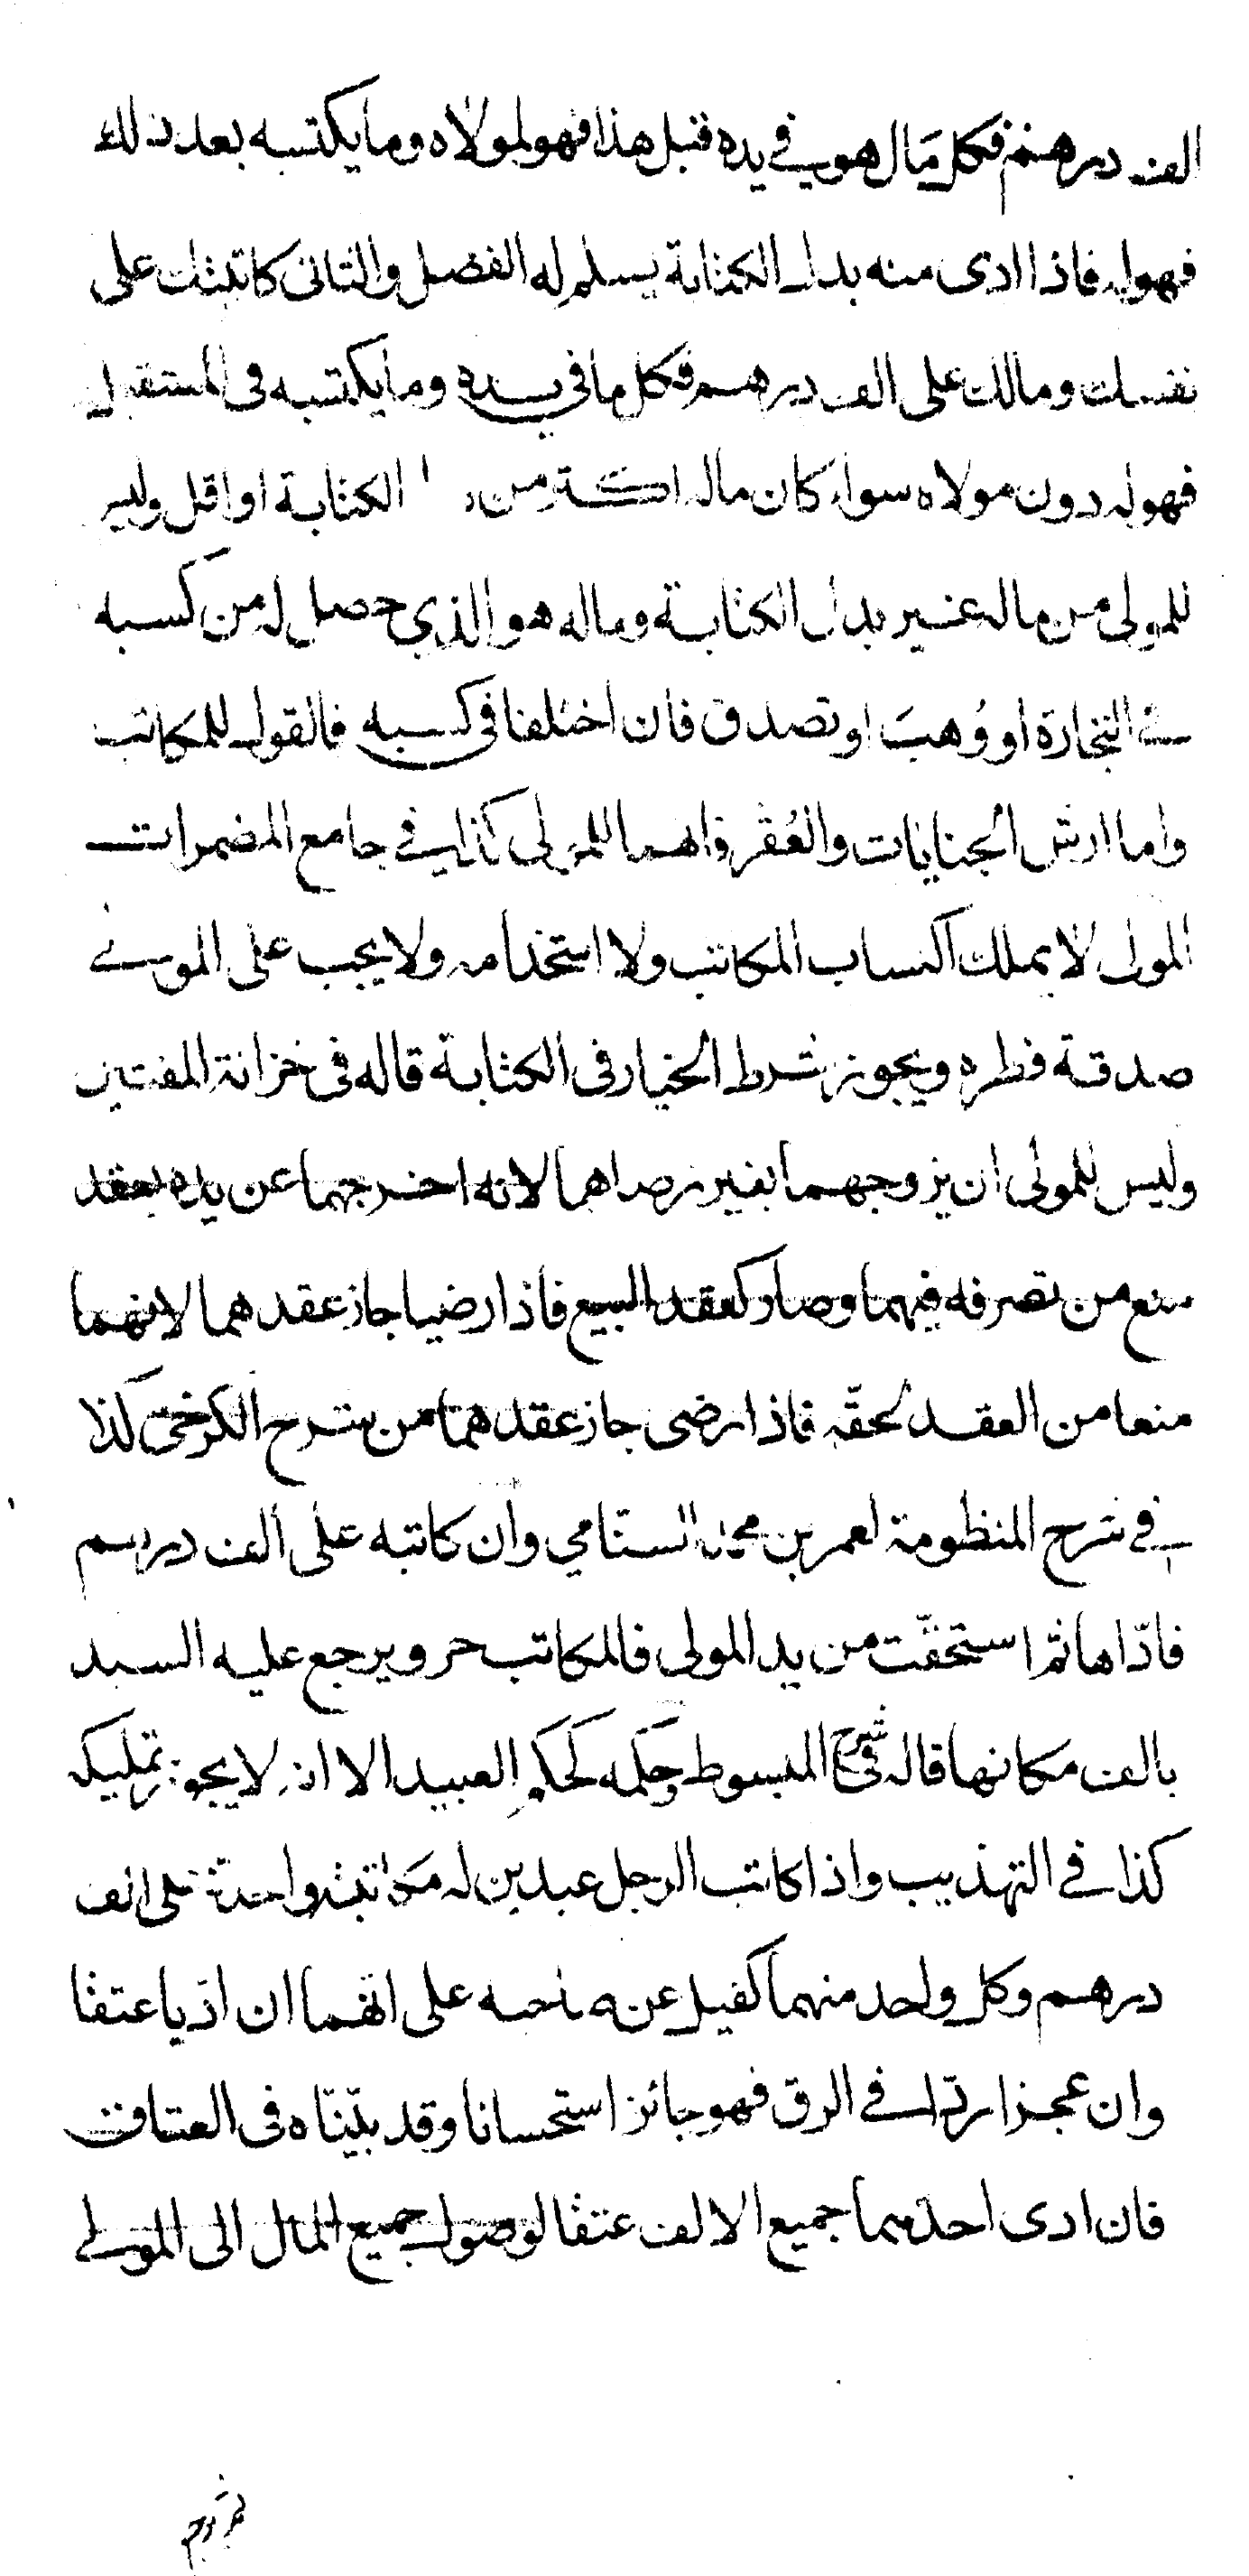 الف درهم فكل مال هو في يده قبل هذا فهو لمولاه وما يكتسبه بعد ذلك
فهو له فاذا ادى منه بدل الكتابة يسلم له الفضل والثانى كاتبتك على
نفسك ومالك على الف درهم فكل ما في يده وما يكتسبه في المستقبل
فهو له دون مولاه سواء كان ماله اكثر من الكتابة او اقل وليس
للمولى من ماله غير بدل الكتابة وماله هو الذي حصل له من كسبه
في التجارة او وُهبَ او تصدق فان اختلفا في كسبه فالقول للمكاتب
واما ارش الجنايات والعُقر فانهما للمولى كذا في جامع المضمرات
المولى لا يملك اكساب المكاتب ولا استخدامه ولا يجب على المولى
صدقة فطره ويجوز شرط الخيار في الكتابة قاله في خزانة المفتين
وليس للمولى ان يزوجهما بغير رضاهما لانه اخرجهما عن يده بعقد
منع من تصرفه فيهما وصار كعقد البيع فاذا رضيا جاز عقدهما لانهما
منعا من العقد لحقّه فاذا رضى جاز عقدهما من شرح الكرخي كذا
في شرح المنظومة لعمر بن محمد السنامي وان كاتبه على الف درهم
فادّاها ثم استحقّت من يد المولى فالمكاتب حر ويرجع عليه السيد
بالف مكانها قاله في شرح المبسوط وحكمه كحكم العبيد الا انه لا يجوز تمليكه
كذا في التهذيب واذا كاتب الرجل عبدين له مكاتبة واحدة على الف
درهم وكل واحد منهما كفيل عن صاحبه على انهما ان ادّيا عتقا
وان عجزا ردّا في الرق فهو جائز استحسانا وقد بيّنّاه في العتاق
فان ادى احدهما جميع الالف عتقا لوصول جميع المال الى المولى